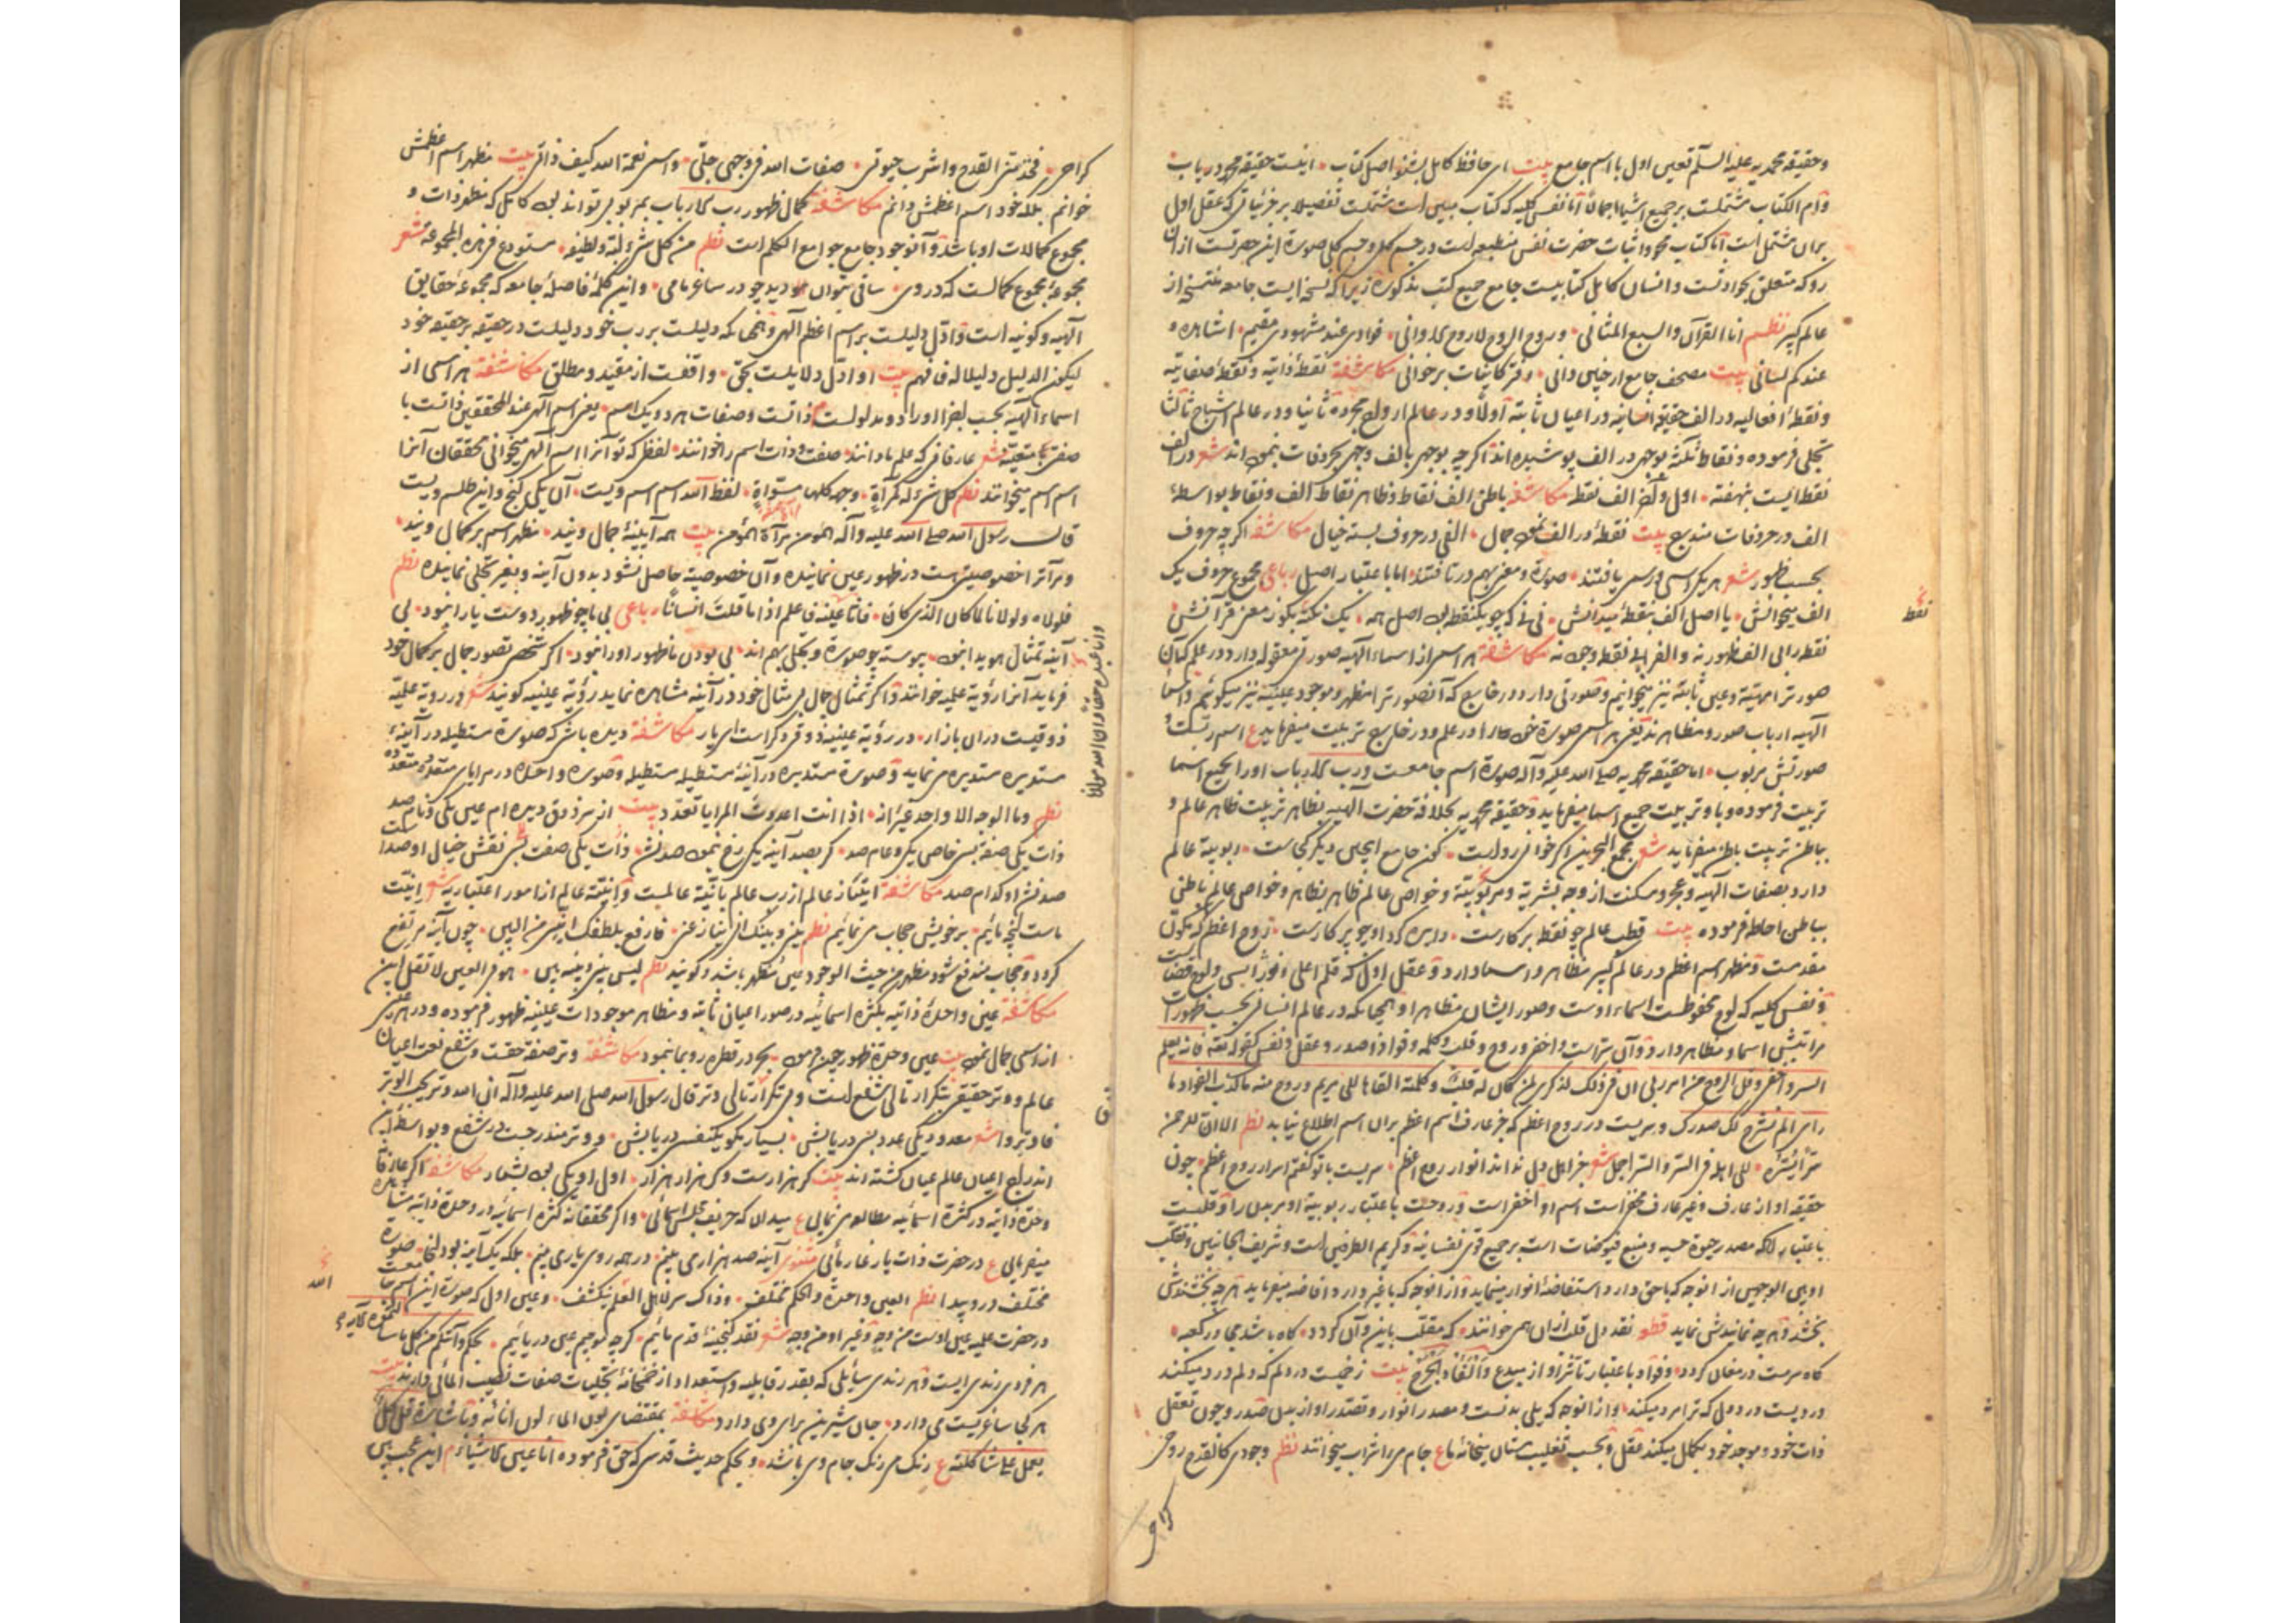 وحقیقه محمدیه علیه السلم تعین اول با اسم جامع بیت ای حافظ کامل بشنو اصل کتاب اینست حقیقه محمد دریاب
وام الکتاب مشتملست بر جمیع اشیا اجمالاً اما نفس کلیه که کتاب مبین است مشتملست تفصیلا بر جزئیاتی که عقل اول
بران مشتمل است اما کتاب محو و اثبات حضرت نفس منطبعه است در جسم کلی و جسم کلی صورة این حضرتست ازان
رو که متعلق بحوادثست و انسان کامل کتابیست جامع جمیع کتب مذکوره زیرا که نسخه ایست جامعه منتسخه از
عالم کبیر نظم انا القرآن والسبع المثانی وروح الروح لا روح الاوانی فوادی عند مشهودی مقیم اشاهده و
عندکم لسانی بیت مصحف جامع ار خوانی دانی دفتر کاینات برخوانی مکاشفة نقطهٔ ذاتیه و نقطهٔ صفاتیه
و نقطهٔ افعالیه در الف حقیقه انسانیه در اعیان ثابته اولاً و در عالم ارواح مجرده ثانیا و در عالم اشباح ثالثا
تجلی فرموده و نقاط ثلثه بوجهی در الف پوشیده اند اگرچه بوجهی بالف وجهی بحروفات نموده اند شعر در الف
نقطه ایست بنهفته اول و آخر الف نقطه مکاشفه باطن الف نقاط و ظاهر نقاط الف و نقاط بواسطهٔ
الف در حروفات مندرج بیت نقطهٔ در الف نموده جمال الفی در حروف بسته خیال مکاشفه اگرچه حروف
بحسب ظهور شعر هر یک اسمی و رسمی یافتند صورة و معنی بهم دریافتند اما باعتبار اصل رباعی مجموع حروف یک
الف میخوانش یا اصل الف بنقطهٔ میدانش نی نی که چو یکنقطه بود اصل همه یک نکته بگو ز معنی قرآنش
نقطه را بی الف ظهور نه والف را بی نقطه وجود نه مکاشفة هر اسمی از اسماء الهیه صورتی معقوله دارد در علم که آن
صورت را مهیة و عین ثابته نیز میخوانیم و صورتی دارد در خارج که آنصورت را مظهر و موجود عینیه نیز میگوئیم و اسما
الهیه ارباب صور و مظاهرند یعنی هر اسمی صورة خود را در علم و در خارج تربیت میفرماید ع اسم ربست و
صورتش مربوب اما حقیقه محمدیه صلی الله علیه وآله صورة اسم جامعست و رب الارباب او را بجمیع اسما
تربیت فرموده و باو تربیت جمیع اسما میفرماید و حقیقه محمدیه بخلافة حضرت الهیه بظاهر تربیت ظاهر عالم و
بباطن تربیت باطن میفرماید شعر مجمع البحرین اگر خوانی رواست کون جامع اینچنین دیگر کجاست ربوبیة عالم
دارد بصفات الهیه و عجز و مسکنت از وجه بشریة و مربوبیّة و خواص عالم ظاهر بظاهر و خواص عالم باطن
بباطن احاطه فرموده بیت قطب عالم چو نقطهٔ پرکارست دایره گرد او چو پرکارست روح اعظم که بکون
مقدمست و مظهر اسم اعظم در عالم کبیر مظاهر و اسما دارد و عقل اول که قلم اعلی و نور انسی و لوح قضاست
و نفس کلیه که لوح محفوظست اسماء اوست و صور ایشان مظاهر او همچنانکه در عالم انسانی بحسب ظهورات
مراتبش اسما و مظاهر دارد و آن سرّاست و اخفی و روح و قلب و کلمه و فواد و صدر و عقل و نفس کقوله تعالی فانه یعلم
السر و اخفی و قل الروح من امر ربی ان فی ذلک لذکری لمن کان له قلب و کلمته القاها الی مریم و روح منه ما کذب الفواد ما
رای الم نشرح لک صدرک و سریست در روح اعظم که جز عارف اسم اعظم بران اسم اطلاع نیابد نظم الا ان للرحمن
حقیقه او از عارف و غیر عارف مخفی است اسم او اخفی است و روحست باعتبار ربوبیة او مر بدن را و قلبست
باعتبار آنکه مصدر حیوة حسیه و منبع فیوضات است بر جمیع قوی نفسانیه و کریم الطرفین است و شریف الجانبین و تقلب
او بین الوجهین از انوجه که باحق دارد استفاضهٔ انوار مینماید و از انوجه که باغیر دارد افاضه میفرماید هرچه بخشندش
بخشد و هرچه نمایندش نماید قطعه نقد دل قلب ازان همی خوانند که مقلّب باین و آن گردد گاه باشد مجاور کعبه
گاه سرمست در مغان گردد و فواد باعتبار تأثر او از مبدع بیت زخمیست در دلم که دلم درد میکند
دردیست در دلی که ترا مرد میکند و از انوجه که یلی بدنست و مصدر انوار و تصدر او از بدن صدر و چون تعقل
ذات خود و موجد خود بکمال میکند عقل جام می و اشراب میخوانند نظم وجودی کالقدح روحی
کراحی
نقط
کراحی فخذ منی القدح واشرب حیوتی صفات الله فی وجهی جلی واسمی نعمة الله کیف ذاتی بیت مظهر اسم اعظمش
خوانم بلکه خود اسم اعظمش دانم مکاشفة کمال ظهور رب الارباب بمربوبی تواند بود کامل که مظهر ذات و
مجموع کمالات او باشد و آنوجود جامع جوامع الکلم است نظم من کل شیء لبه و لطیفه مستودع فی هذه المجموعه شعر
مجموعهٔ مجموع کمالست که دروی ساقی بتوان دید چو در ساغر مامی و این کلمهٔ فاصلهٔ جامعه که مجموعهٔ حقایق
الهیه و کونیه است و ادل دلیلست بر اسم اعظم الهی و همچنانکه دلیلست بر رب خود دلیلست در حقیقه بر حقیقه خود
لیکون الدلیل دلیلا له فافهم بیت او ادل دلایلست بحق واقفست از مقید و مطلق مکاشفة هر اسمی از
صفتی متعیّنه شعر عارفانی که علم ما دانند صفت و ذات اسم را خوانند لفظی که تو آنرا اسم الهی میخوانی محققان آنرا
اسم اسم میخوانند نظم کل شیء له کمرآة وجهه کلها مسوّاة لفظ الله اسم اسم ویست آن یکی گنج و این طلسم ویست
قال رسول الله صلی الله علیه وآله المؤمن مرآة المؤمن بیت همه آیینهٔ جمال ویند مظهر اسم بر کمال ویند
و مرآت را خصوصیتی است در ظهور عین نماینده و آن خصوصیة حاصل نشود بدون آینه و بغیر تجلی نماینده نظم
فلولاه ولولانا لما کان الذی کان رباعی بی ما چو ظهور دوست یارا نبود بی
آینه تمثال هویدا نبود پیوسته چو صورة و تجلی بهم اند بی بودن ما ظهور او را نبود اگر شخصی تصور جمال بر کمال خود
فرماید آنرا رؤیة علمیه خوانند و اگر تمثال جمال بی مثال خود در آینه مشاهده نماید رؤیة عینیه گویند شعر در رویة علمیّه
ذوقیست دران بازار در رؤیة عینیه ذوقی دگر است ای یار مکاشفة دیده باشی که صورة مستطیله در آیینهٔ
مستدیره مستدیره می نماید و صورة مستدیره در آینهٔ مستطیله مستطیله و صورة واحده در مرایای متعدده متعدده
نظم وما الوجه الا واحد غیر انه اذا انت اعددت المرایا تعدد بیت از سر ذوق دیده ام عین یکی و نام صد
ذات یکی صفة بسی خاص یکی و عام صد گر بصد آینه یکی رخ بنمود صد نشد ذات یکی صفت بسی نقش خیال او صداست
صد نشد او کدام صد مکاشفة امتیاز عالم از رب عالم بانیّة عالمست و انیّة عالم از امور اعتباریه شعر انیّت
ماست آنچه مائیم بر خویش حجاب می نمائیم نظم بینی و بینک انی ینازعنی فارفع بلطفک انیی من البین چون آینه مرتفع
گردد و حجاب مندفع شود مظهر من حیث الوجود عین مظهر باشد و گویند نظم لیس بینی و بینه بین هو فی العین لا تقل این
مکاشفة عین واحدهٔ ذاتیه بکثرة اسمائیه در صور اعیان ثابته و مظاهر موجودات عینیه ظهور فرموده و در هر عینی
از اسمی جمال نمود بیت عین وحدة ظهور چون فرمود بحر در قطره رو بما بنمود مکاشفة وتر صفة حقست و شفع نعت اعیان
عالم و وتر حقیقی بتکرار تالی شفع است و بی تکرار تالی وتر قال رسول الله صلی الله علیه وآله ان الله وتر یحب الوتر
فاوتروا شعر معدود یکی عدد بسی دریابش بسیار نکو یکنفسی دریابش و وتر مندرجست در شفع و بواسطهٔ این
اندراج اعیان عالم عیان گشته اند بیت گر هزارست و گر هزار هزار اول او یکی بود بشمار مکاشفة اگر عارفانه
وحدة ذاتیه در کثرة اسمائیه مطالعه می نمایی ع میدان که حریف مجلس اسمائی و اگر محققانه کثرة اسمائیه در وحدة ذاتیه مشاهده
میفرمایی ع در حضرت ذات یار غار مائی مثنوی آینه صد هزار می بینم در همه روی یار می بینم بلکه یک آینه بود اینجا صورة
مختلف درو پیدا نظم العین واحدة والحکم مختلف وذاک سر لاهل العلم ینکشف و عین اول که صورة این اسم جامعست
در حضرت علمیه عین اوست من وجه و غیر او من وجه شعر نقد گنجینهٔ قدم مائیم گرچه موجیم عین دریائیم بحکم و آتیکم من کل ما سالتموه
هر فردی رندی ایست و هر رندی سایلی که بقدر قابلیه و استعداد از خمخانهٔ تجلیات صفات نصیب المائی دارند بیت
هر کجا ساغریست می دارد جان شیرین برای وی دارد مکاشفة بمقتضای لون الماء لون انائه و باشارة قل کل
یعمل علی شاکلته ع رنگ می رنگ جام وی باشد و بحکم حدیث قدسی که حق فرموده انا عین الاشیاء
الله